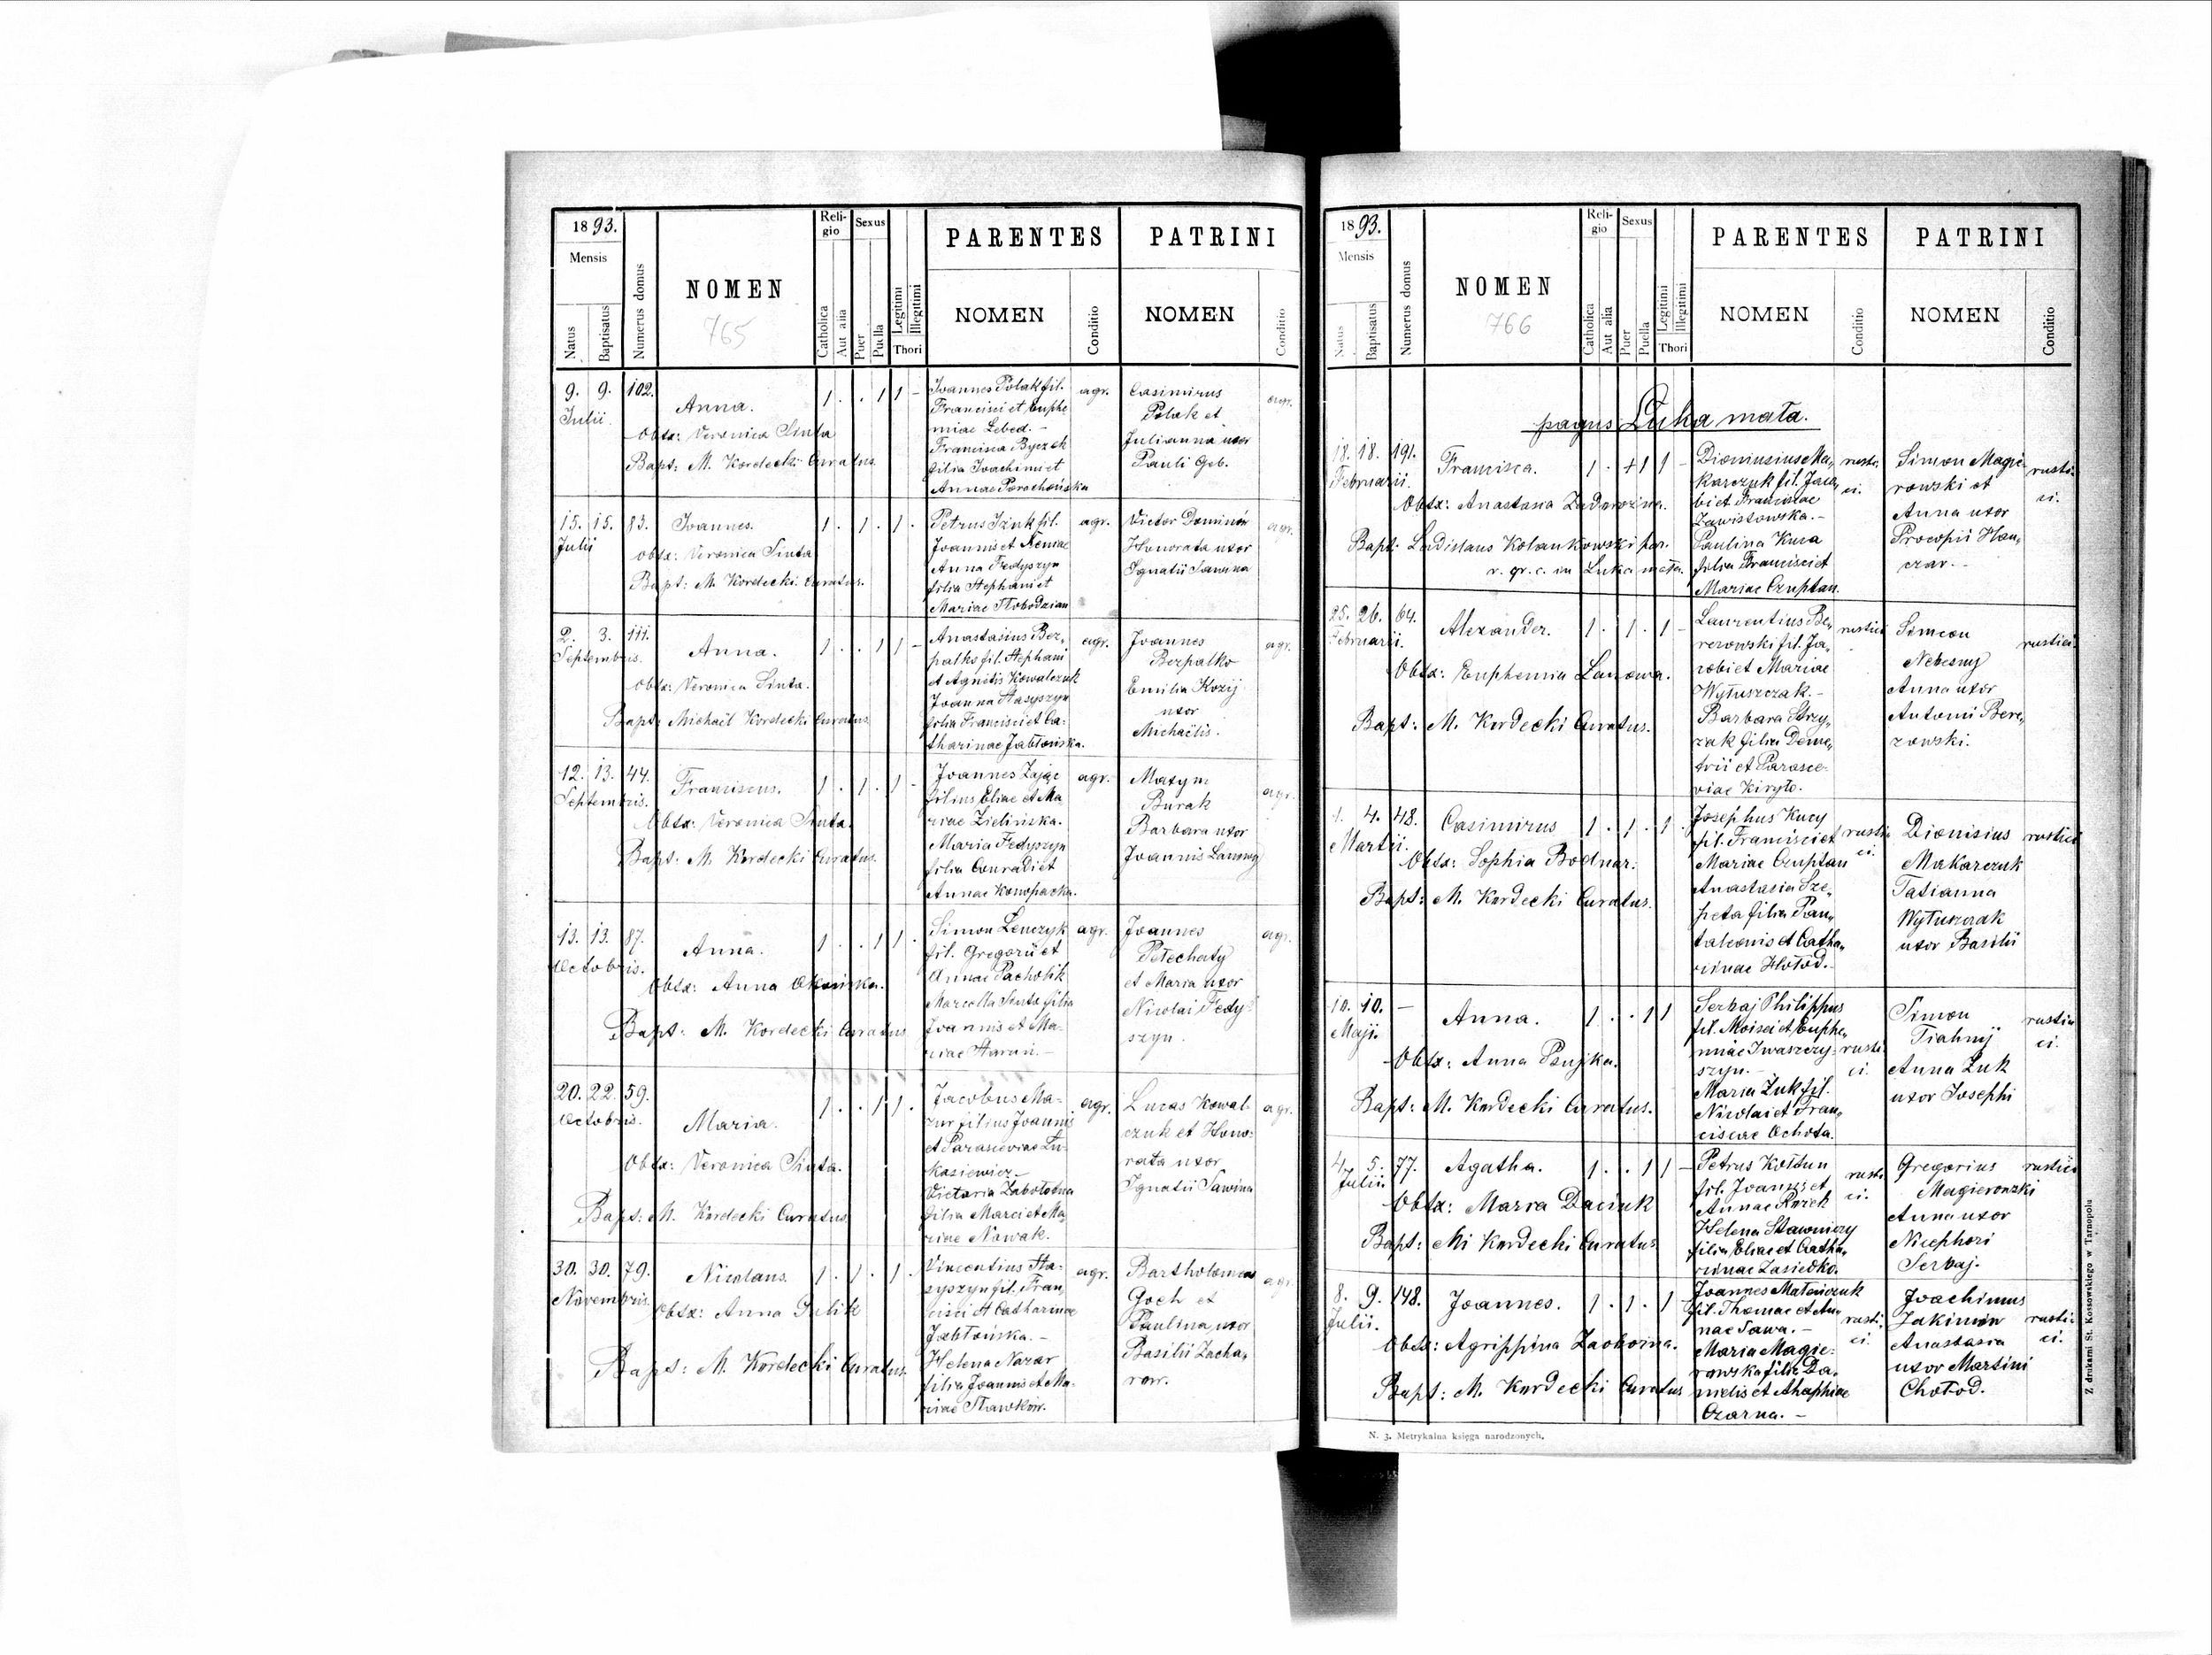 1893.
Mensis
Natus
Baptisatus
Numerus domus
NOMEN
765
Religio
Catholica
Aut alia
Sexus
Puer
Puella
Legitimi
Illegitimi
Thori
PARENTES
NOMEN
Conditio
PATRINI
NOMEN
Conditio
9. 9. 102.
Julii.
Anna.
1 . . 1 1 -
Obstx: Veronica Sinta
Bapt: M. Kordecki Curatus.
Joannes Polak fil.
Francisci et Euphe
miae Lebed. -
Francisca Byczek
filia Joachimi et
Annae Porochońska
agr.
Casimirus
Polak et
Julianna uxor
Pauli Geb.
agr.
15. 15. 83.
Julii
Joannes.
1 . 1 . 1 .
obstx: Veronica Sinta
Bapt: M. Kordecki Curatus.
Petrus Iżuk fil.
Joannis et Xeniae
Anna Fedyszyn
filia Stephani et
Mariae Słobodzian
agr.
Victor Dominów
Honorata uxor
Ignatii Sawina
agr.
2. 3. 111.
Septembris.
Anna.
1 . . 1 1 -
Obstx: Veronica Sinta.
Bapt: Michaël Kordecki Curatus
Anastasius Bez,
palko fil. Stephani
et Agnetis Kowalczuk
Joanna Stasyszyn
filia Francisci et Ca:
tharinae Jabłońska.
agr.
Joannes
Bezpalko
Emilia Kozij
uxor
Michaëlis.
agr.
12. 13. 44.
Septembris.
Franciscus.
1 . 1 . 1 -
Obstx: Veronica Sinta.
Bapt: M. Kordecki Curatus.
Joannes Zając
filius Eliae et Ma
riae Zielińska.
Maria Fedyszyn
filia Conradi et
Annae Konopacka.
agr.
Maxym
Burak
Barbara uxor
Joannis Lanowy
agr.
13. 13. 87.
Octobris.
Anna.
1 . . 1 1 .
Obstx: Anna
Bapt: M. Kordecki Curatus
Simon Lenczyk
fil. Gregorii et
Annae Pacholik
Marcella Sinta filia
Joannis et Ma-
riae -
agr.
Joannes
Petechaty
et Maria uxor
Nicolai Fedy-
szyn.
agr.
20. 22. 59.
Octobris.
Maria.
1 . . 1 1 .
Obstx: Veronica Sinta.
Bapt: M. Kordecki Curatus
Jacobus Ma-
zur filius Joannis
et Parascevias Lu-
kasiewicz. -
Victoria Zabołotna
filia Marci et Ma,
riae Nowak.
agr.
Lucas Kowal-
czuk et Hono:
rata uxor
Ignatii Sawina
agr.
30. 30. 79.
Novembris.
Nicolaus.
1 . 1 . 1 .
Obstx: Anna Gulik
Bapt: M. Kordecki Curatus.
Vincentius Sta-
syszyn fil. Fran,
cisci et Catharinae
Jabłońska. -
Helena Nazar
filia Joannis et Ma-
riae Stawkow.
agr.
Bartholomeus
Goch et
Paulina uxor
Basilii Zacha,
row.
agr.
1893.
Mensis
Natus
Baptisatus
Numerus domus
NOMEN
766
Religio
Catholica
Aut alia
Sexus
Puer
Puella
Legitimi
Illegitimi
Thori
PARENTES
NOMEN
Conditio
PATRINI
NOMEN
Conditio
pagus Łuka mała.
18. 18. 191.
Februarii.
Francisca.
1 . + 1 1 -
Obstx: Anastasia Zadorożna.
Bapt: Ladislaus Kolankowski par.
r. gr. c. in Łuka mała.
Dionisius Ma,
karczuk fil. Jaco,
bi et Franciscae
Zawistowska. -
Paulina Kuca
filia Francisci et
Mariae Czuptan.
rusti,
ci.
Simon Magie-
rowski et
Anna uxor
Procopii Hon,
czar. -
rusti-
ci.
25. 26. 64.
Februarii.
Alexander.
1 . 1 . 1 -
Obstx: Euphemia Lanowa.
Bapt: M. Kordecki Curatus.
Laurentius Be,
rezowski fil. Ja,
cobi et Mariae
Wytuszczak. -
Barbara Strzy,
zak filia Deme,
trii et Parasce-
viae Kiryło.
rustici
Simeon
Nebesny
Anna uxor
Antonii Bere,
zowski.
rustici
4. 48.
Martii.
Casimirus
1 . 1 . 1 .
Obstx: Sophia Bodnar.
Bapt: M. Kordecki Curatus.
Josephus Kucy
fil. Francisci et
Mariae Czuptan
Anastasia Sze,
peta filia Pan,
taleonis et Catha,
rinae Hołod. -
rusti-
ci.
Dionisius
Makarczuk
Tatianna
Wytuszczak
uxor Basilii
rustici
10. 10. -
Maji.
Anna.
1 . . 1 1
Obstx: Anna Psujka.
Bapt: M. Kordecki Curatus.
Serbaj Philippus
fil. Moisei et Euphe,
miae Iwaszczy-
szyn. -
Maria Żuk fil.
Nicolai et Fran,
ciscae Ochota.
rusti-
ci.
Simon
Tiahnij
Anna Żuk
uxor Josephi
rusti
ci.
4. 5. 77.
Julii
Agatha.
1 . . 1 1 -
Obstx: Maria Daciuk
Bapt: Mi Kordecki Curatus
Petrus Kołtun
fil. Joannis et
Annae
Helena Stawniczy
filia Eliae et Catha,
rinae Zasiedko.
rusti
ci.
Gregorius
Magierowski
Anna uxor
Nicephori
Serbaj.
rustici
8. 9. 148.
Julii.
Joannes.
1 . 1 . 1 -
Obstx: Agrippina
Bapt: M. Kordecki Curatus
Joannes Mateńczuk
fil. Thomae et An,
nae Sawa. -
Maria Magie-
rowska filia Da,
nielis et Ahaphiae
Czarna. -
rusti,
ci.
Joachimus
Jakimów
Anastasia
uxor Martini
Chołod.
rusti-
ci.
N. 3. Metrykalna księga narodzonych.
Z drukarni St. Kossowskiego w Tarnopolu